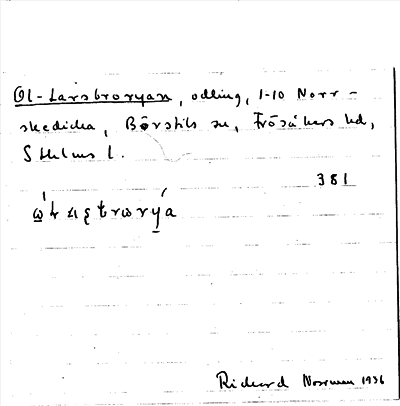 Ol-Larsbroryan, odling, 1-10 Norr-
skedicka, Börstils sn, Frösåkers hd,
Sthlms l.
381
Richard Norrman 1936